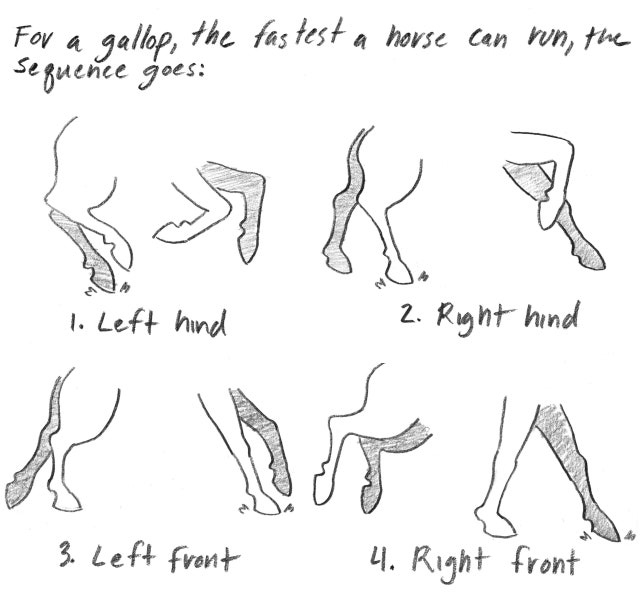 For a gallop, the fastest a horse can run, the
sequence goes:
1. Left hind
2. Right hind
3. Left front
4. Right front